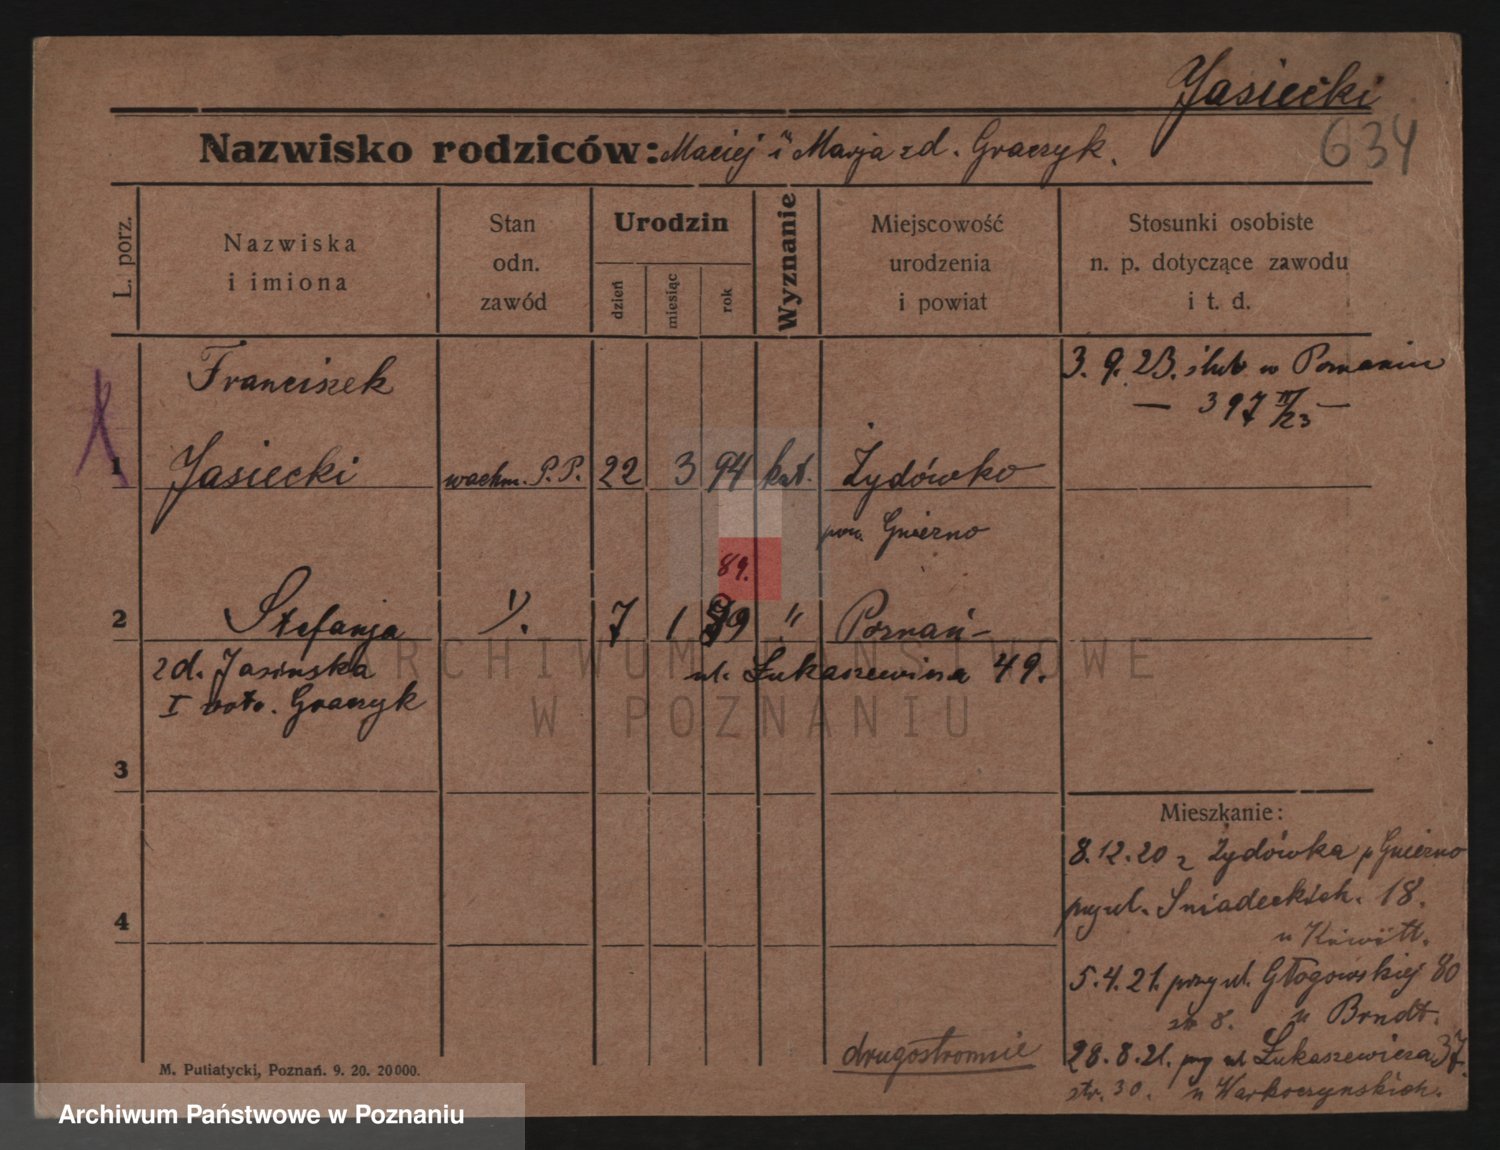 Jasiecki
634
Nazwisko rodziców: Maciej i Marja zd. Graczyk.
L. porz.
Nazwiska
i imiona
Stan
odn.
zawód
Urodzin
dzień
miesiąc
rok
Wyznanie
Miejscowość
urodzenia
i powiat
Stosunki osobiste
n. p. dotyczące zawodu
i t. d.
Franciszek
3. 9. 23. ślub w Poznaniu
— 397 III/23 —
1 Jasiecki wachm. P.P. 22 3 94 kat. Żydówko
pow. Gniezno
89.
2 Stefanja 7 1 " Poznań
zd. Jasińska ul. Łukaszewicza 49.
I voto. Graczyk
3
4
Mieszkanie:
8.12.20 z Żydówka p Gniezno
przy ul. Sniadeckich. 18.
u
5.4.21. przy ul. Głogowskiej 80
str 8. u Brndt.
28.8.21. przy ul Łukaszewicza 37.
str. 30. u Warkoczynskich.
drugostronnie
M. Putiatycki, Poznań. 9. 20. 20000.
ARCHIWUM PAŃSTWOWE
W POZNANIU
Archiwum Państwowe w Poznaniu